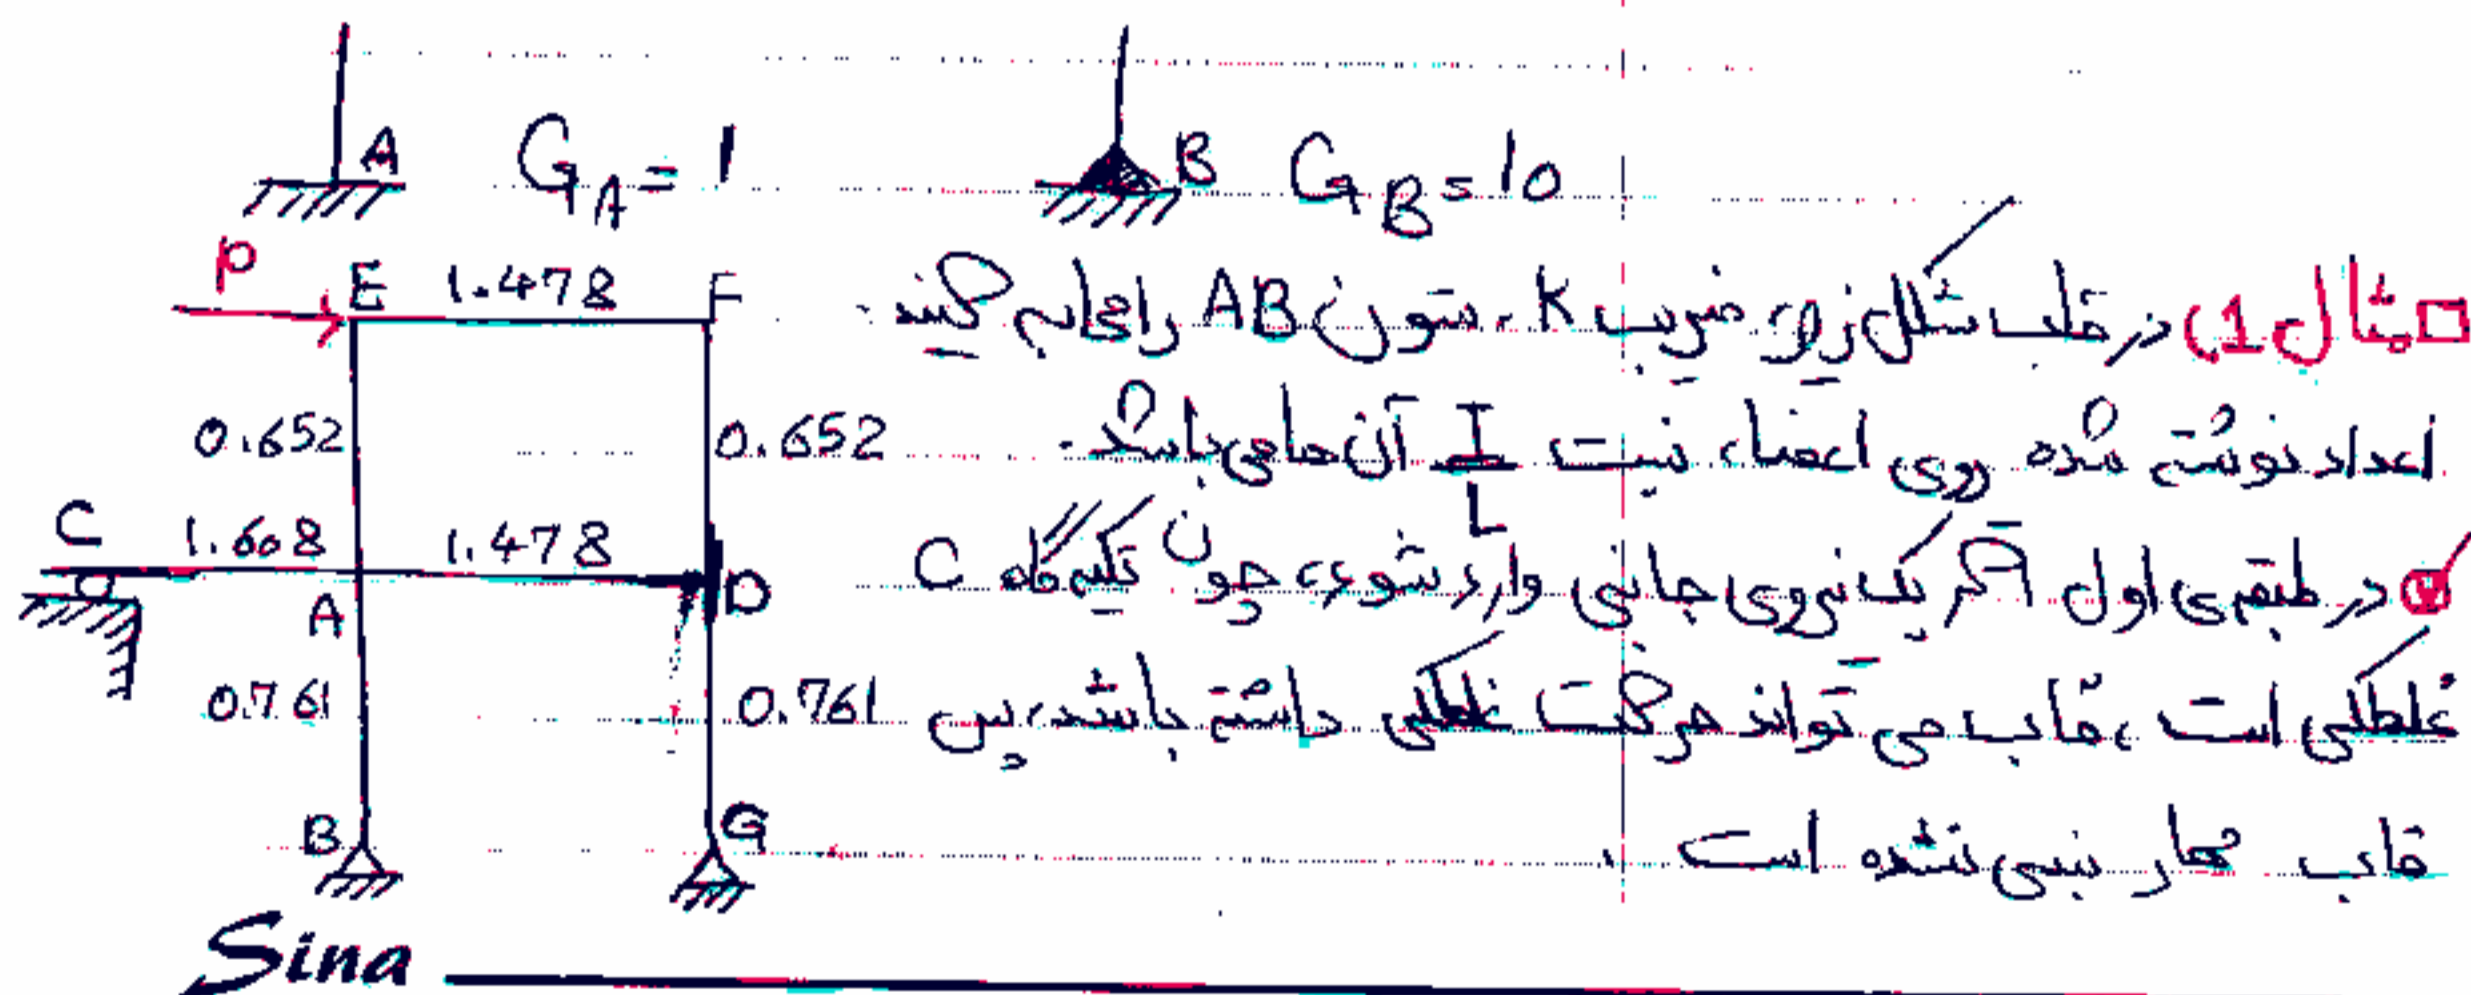 A G_A = 1 B G_B = 10
مثال 1) در قاب شکل زیر، ضریب K، ستون AB را محاسبه کنید.
اعداد نوشته شده روی اعضاء نسبت I/L آن ها می باشد.
در طبقه ی اول اگر یک نیروی جانبی وارد شود، چون تکیه گاه C
غلطکی است، قاب می تواند حرکت غلطکی داشته باشد، پس
قاب مهار بندی نشده است.
P E 1.478 F
0.652 0.652
C 1.608 1.478
A D
0.761 0.761
B G
Sina